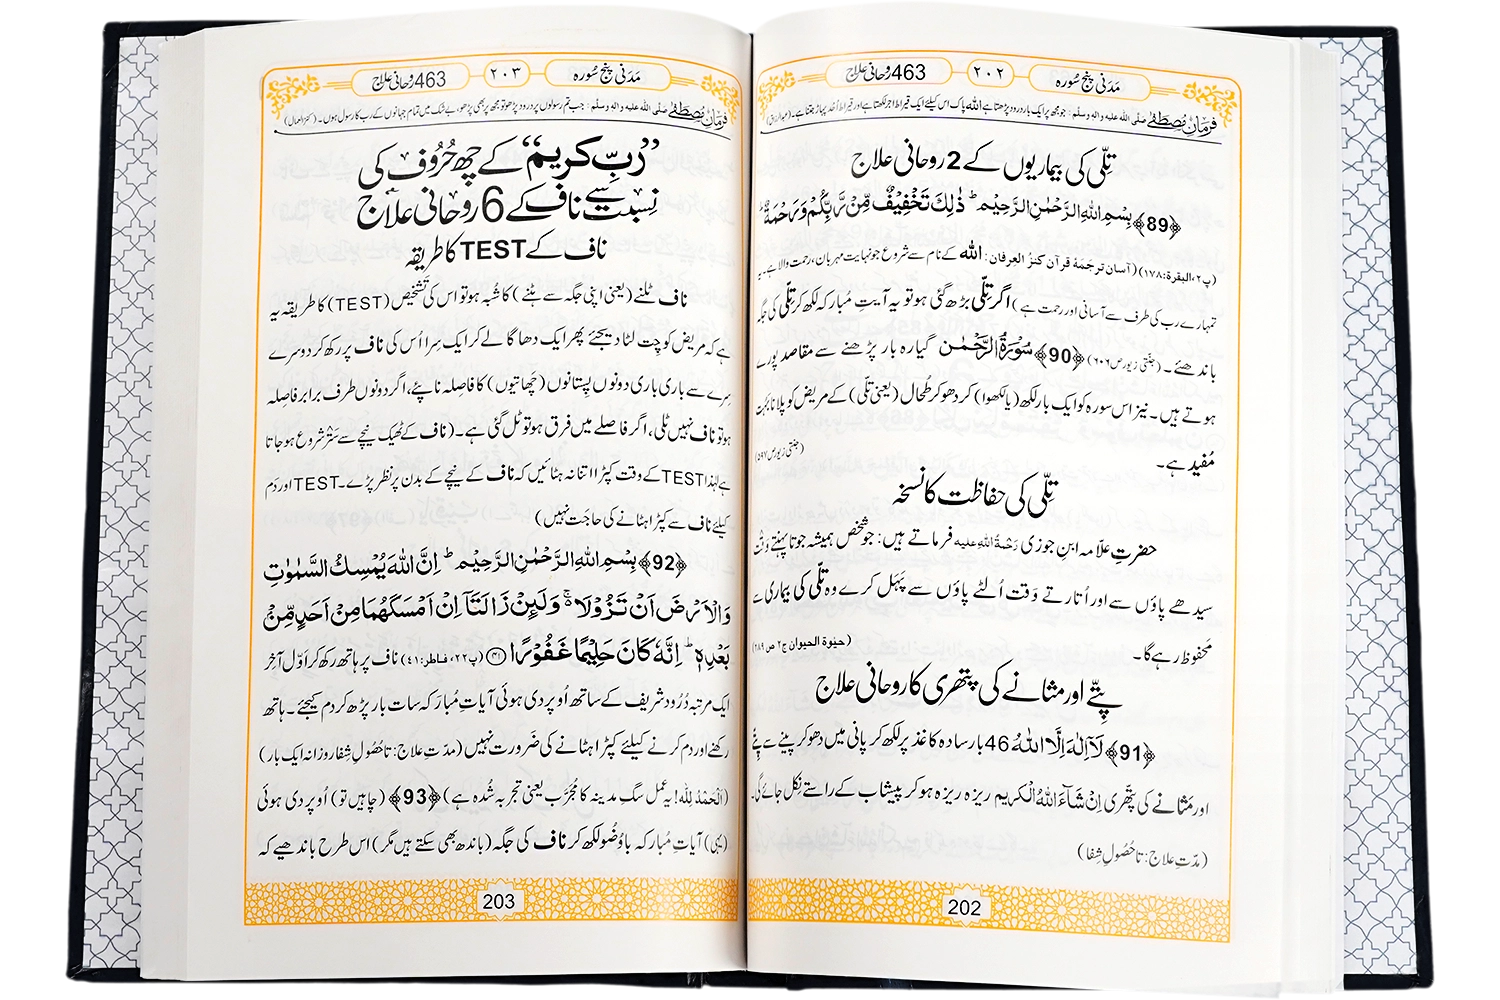 مَدَنی پنج سُورہ
۲۰۲
463 رُوحانی علاج
فرمانِ مُصطَفٰے صلی اللہ علیہ والہٖ وسلم: جو مجھ پر ایک بار درود پڑھتا ہے اللہ پاک اس کیلئے ایک قیراط اجر لکھتا ہے اور قیراط اُحد پہاڑ جتنا ہے۔
تِلّی کی بیماریوں کے 2 روحانی علاج
﴿89﴾ بِسْمِ اللهِ الرَّحْمٰنِ الرَّحِيْمِ ؕ ذٰلِكَ تَخْفِيْفٌ مِّنْ رَّبِّكُمْ وَرَحْمَةٌ ؕ
(پ۲، البقرۃ: ۱۷۸) (آسان ترجَمۂ قرآن کنزُ العِرفان: اللہ کے نام سے شروع جو نہایت مہربان، رحمت والا ہے۔ یہ
تمہارے رب کی طرف سے آسانی اور رحمت ہے) اگر تِلّی بڑھ گئی ہو تو یہ آیتِ مُبارَکہ لکھ کر تِلّی کی جگہ
باندھئے۔ (جنّتی زیور ص۶۰۶) ﴿90﴾ سُوْرَۃُ الرَّحْمٰن گیارہ بار پڑھنے سے مقاصد پورے
ہوتے ہیں۔ نیز اس سورہ کو ایک بار لکھ (یا لکھوا) کر دھو کر طُحال (یعنی تلّی) کے مریض کو پلانا بَہُت
مُفید ہے۔ (جنّتی زیور ص۵۹۷)
تِلّی کی حفاظت کا نسخہ
حضرتِ علّامہ ابنِ جوزی رَحْمۃُ اللهِ علیہ فرماتے ہیں: جو شخص ہمیشہ جوتا پہنتے وَقْت
سیدھے پاؤں سے اور اُتارتے وَقت اُلٹے پاؤں سے پَہَل کرے وہ تِلّی کی بیماری سے
مَحفوظ رہے گا۔ (حیٰوۃ الحیوان ج۲ ص۲۸۹)
پِتّے اور مثانے کی پتھری کا روحانی علاج
﴿91﴾ لَاۤ اِلٰہَ اِلَّا اللهُ 46 بار سادہ کاغذ پر لکھ کر پانی میں دھو کر پینے سے پِتّے
اور مَثانے کی پتّھری اِنْ شَآءَ اللهُ الْکَرِیم ریزہ ریزہ ہو کر پیشاب کے راستے نکل جائے گی۔
(مدّتِ علاج: تاحُصُولِ شِفا)
202
مَدَنی پنج سُورہ
۲۰۳
463 رُوحانی علاج
فرمانِ مُصطَفٰے صلی اللہ علیہ والہٖ وسلم: جب تم رسولوں پر درود پڑھو تو مجھ پر بھی پڑھو، بے شک میں تمام جہانوں کے رب کا رسول ہوں۔ (کنز العمال)
”رَبِّ کریم“ کے چھ حُرُوف کی
نسبت سے ناف کے 6 روحانی علاج
ناف کے TEST کا طریقہ
ناف ٹلنے (یعنی اپنی جگہ سے ہٹنے) کا شُبہ ہو تو اس کی تَشخیص (TEST) کا طریقہ یہ
ہے کہ مریض کو چِت لٹا دیجئے پھر ایک دھاگا لے کر ایک سِرا اُس کی ناف پر رکھ کر دوسرے
سِرے سے باری باری دونوں پِستانوں (چھاتیوں) کا فاصلہ ناپئے، اگر دونوں طرف برابر فاصلہ
ہو تو ناف نہیں ٹلی، اگر فاصلے میں فرق ہو تو ٹل گئی ہے۔ (ناف کے ٹھیک نیچے سے سَتْر شروع ہو جاتا
ہے لہٰذا TEST کے وقت کپڑا اتنا نہ ہٹائیں کہ ناف کے نیچے کے بدن پر نظر پڑے۔ TEST اور دَم
کیلئے ناف سے کپڑا ہٹانے کی حاجَت نہیں)
﴿92﴾ بِسْمِ اللهِ الرَّحْمٰنِ الرَّحِيْمِ ؕ اِنَّ اللهَ يُمْسِكُ السَّمٰوٰتِ
وَالْاَرْضَ اَنْ تَزُوْلَا ۚ۬ وَلَىِٕنْ زَالَتَاۤ اِنْ اَمْسَكَهُمَا مِنْ اَحَدٍ مِّنْۢ
بَعْدِهٖ ؕ اِنَّهٗ كَانَ حَلِيْمًا غَفُوْرًا ﴿۴۱﴾ (پ۲۲، فاطر: ۴۱) ناف پر ہاتھ رکھ کر اوّل آخِر
ایک مرتبہ دُرُود شریف کے ساتھ اُوپر دی ہوئی آیاتِ مُبارَکہ سات بار پڑھ کر دم کیجئے۔ ہاتھ
رکھنے اور دم کرنے کیلئے کپڑا ہٹانے کی ضَرورت نہیں (مدّتِ علاج: تا حُصُولِ شِفا روزانہ ایک بار)
(اَلْحَمْدُ لِلّٰہ! یہ عمل سگِ مدینہ کا مُجَرَّب یعنی تجرِبہ شُدہ ہے) ﴿93﴾ (چاہیں تو) اُوپر دی ہوئی
(یہی) آیاتِ مُبارَکہ باوُضُو لکھ کر ناف کی جگہ (باندھ بھی سکتے ہیں مگر) اس طرح باندھیے کہ
203